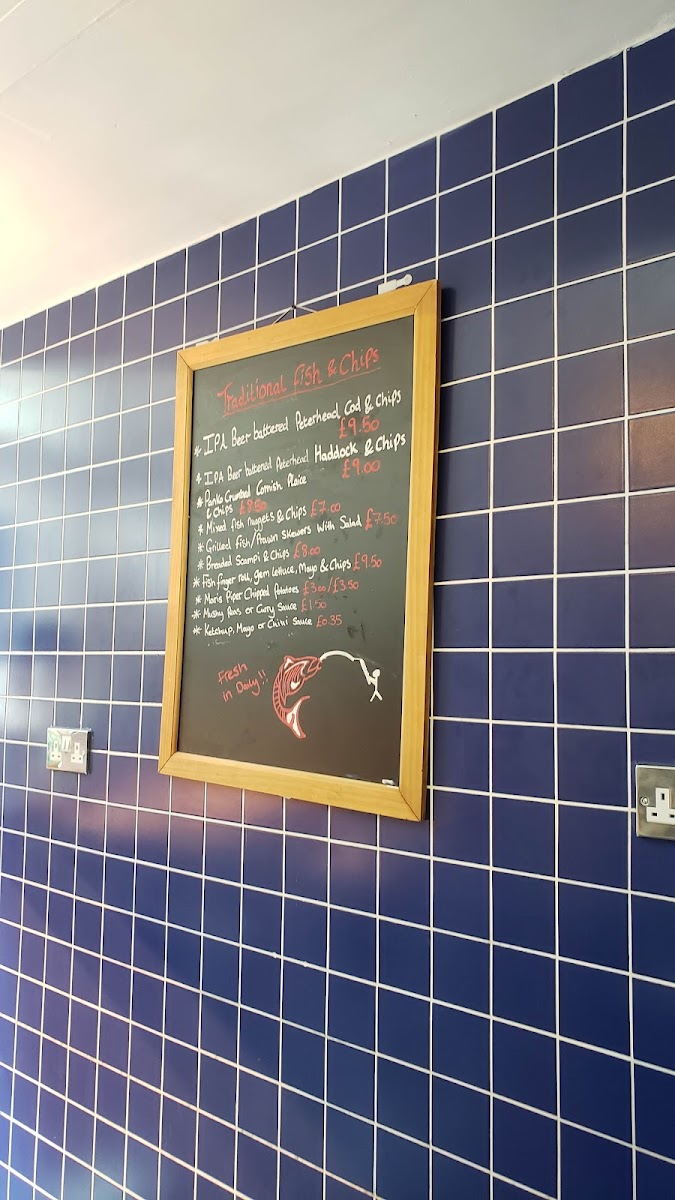 Traditional Fish & Chips
* IPA Beer battered Peterhead Cod & Chips
£9.50
* IPA Beer battered Peterhead Haddock & Chips
£9.00
* Panko Crumbed Cornish Plaice
& Chips £8.50
* Mixed fish nuggets & Chips £7.00
* Grilled fish/Prawn skewers With Salad £7.50
* Breaded Scampi & Chips £8.00
* Fish finger roll, gem lettuce, Mayo & Chips £9.50
* Maris Piper Chipped Potatoes £3.00/£3.50
* Mushy Peas or Curry Sauce £1.50
* Ketchup, Mayo or Chilli Sauce £0.35
Fresh
in Daily!!